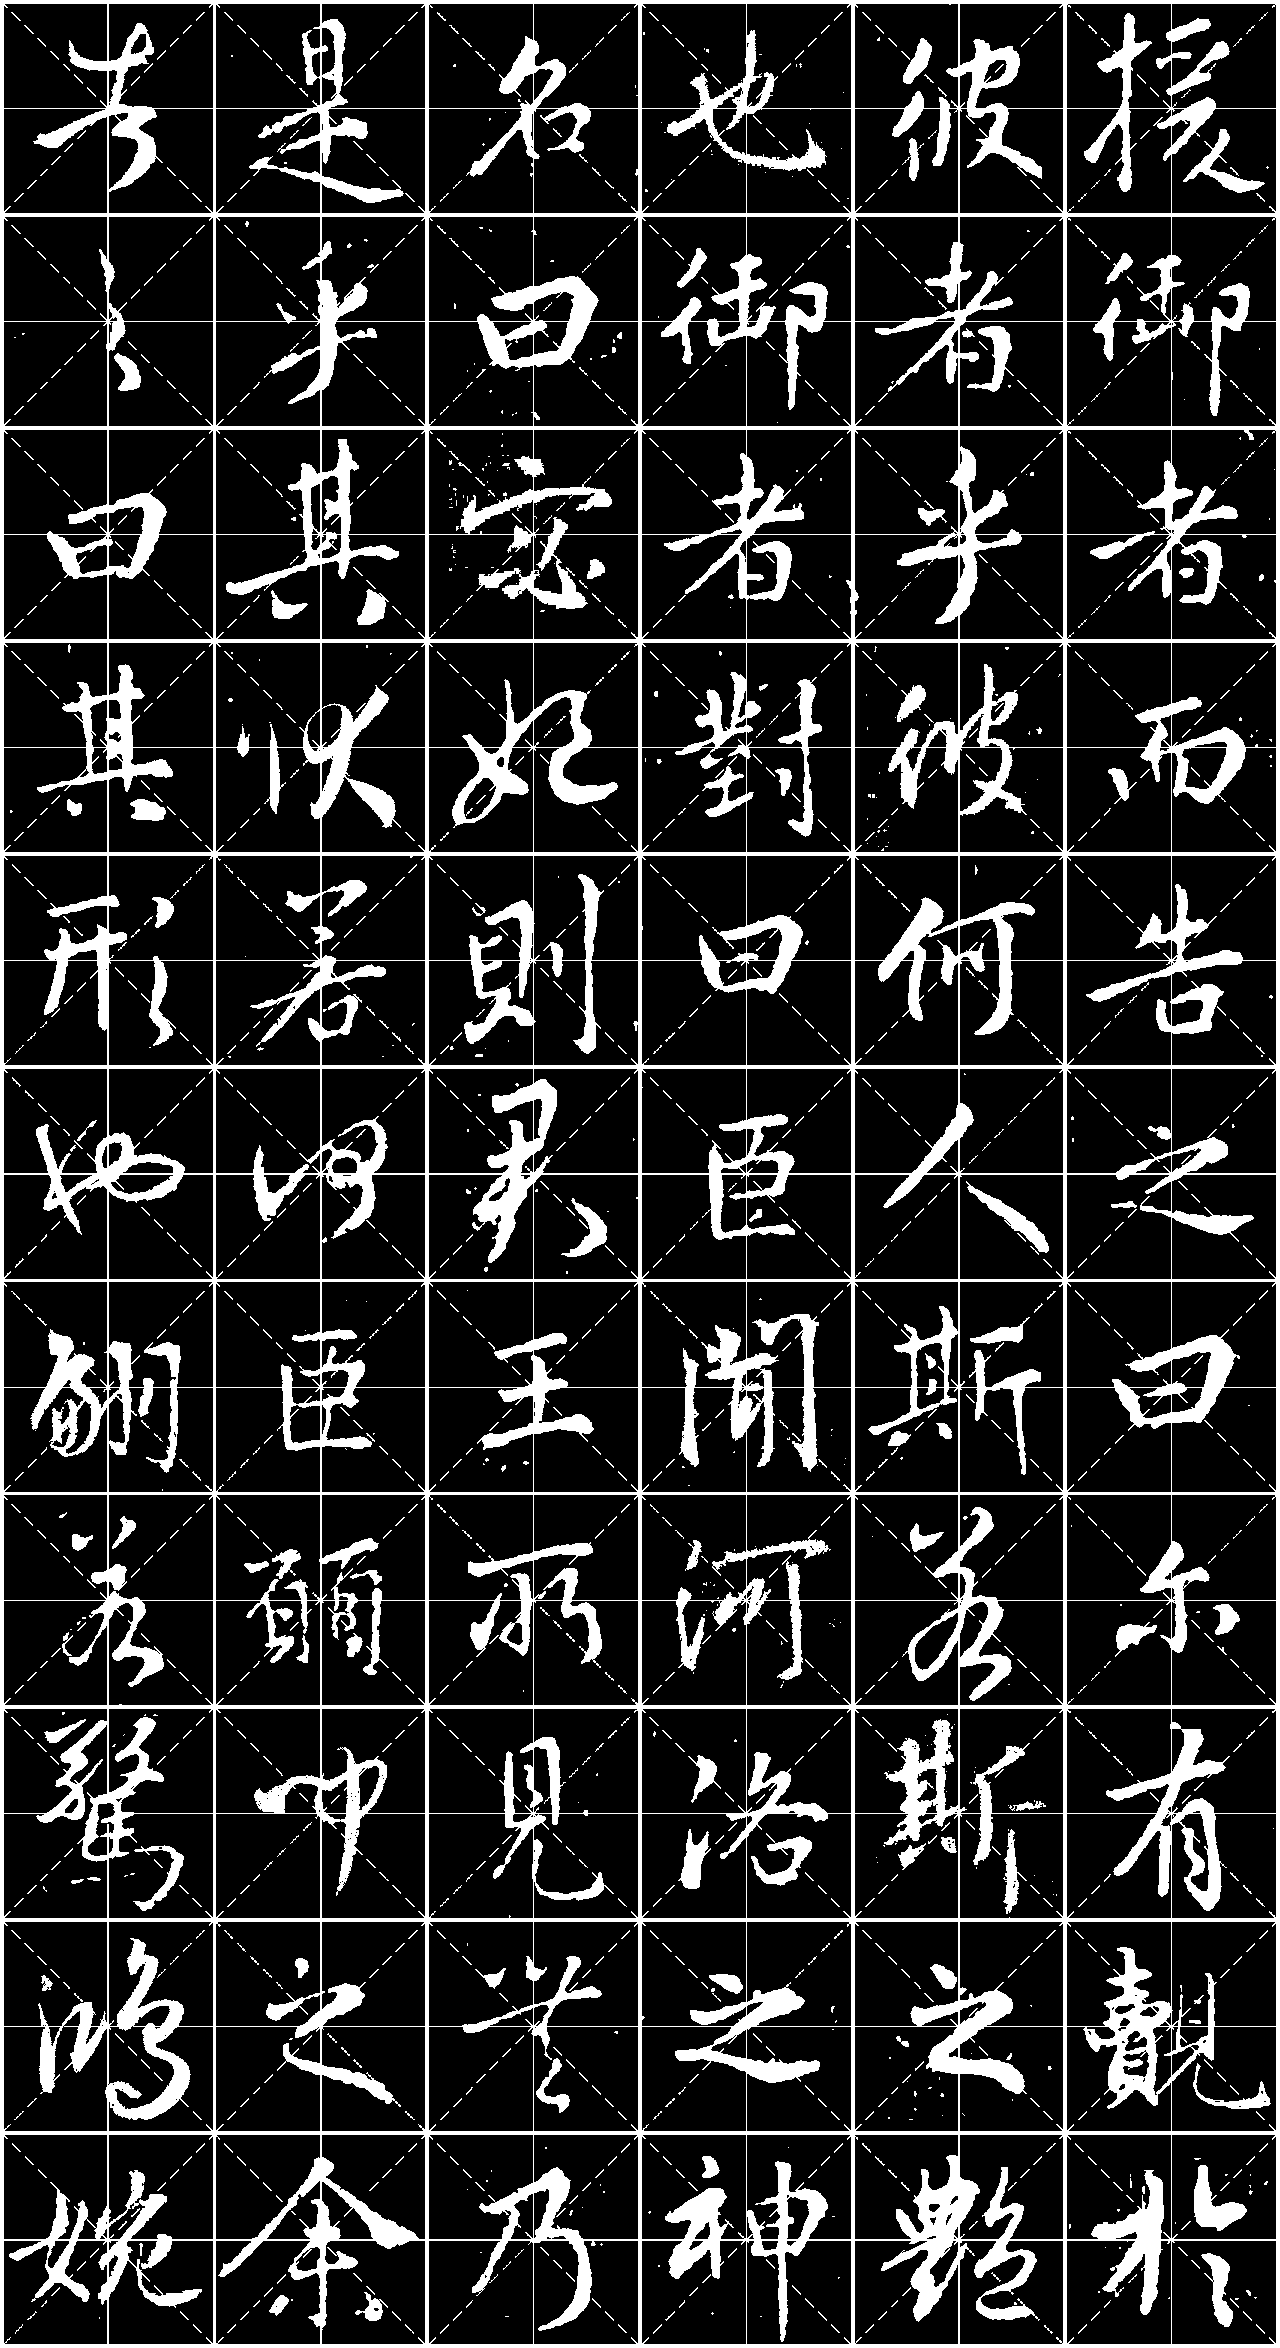 援御者而告之曰尔有覿於
彼者乎彼何人斯若斯之艷
也御者對曰臣聞河洛之神
名曰宓妃則君王所見無乃
是乎其狀若何臣願聞之余
告之曰其形也翩若驚鴻婉